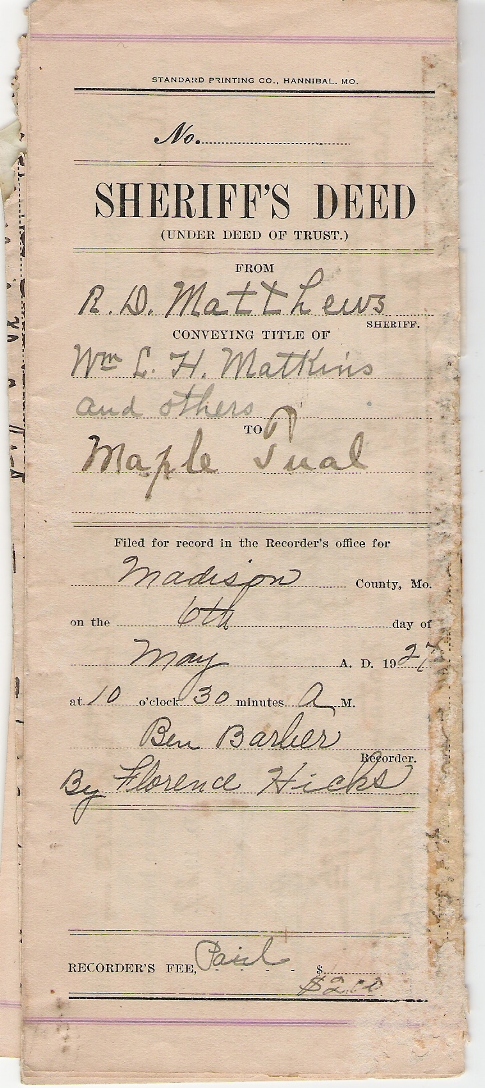 STANDARD PRINTING CO., HANNIBAL, MO.
No.
SHERIFF'S DEED
(UNDER DEED OF TRUST.)
FROM
R. D. Matthews
SHERIFF.
CONVEYING TITLE OF
Wm L. H. Matkins
and others
TO
Maple
Filed for record in the Recorder's office for
Madison County, Mo.
on the 6th day of
May A. D. 1927
at 10 o'clock 30 minutes A M.
Ben Barber
Recorder.
By Florence Hicks
RECORDER'S FEE, Paid $
$2.00